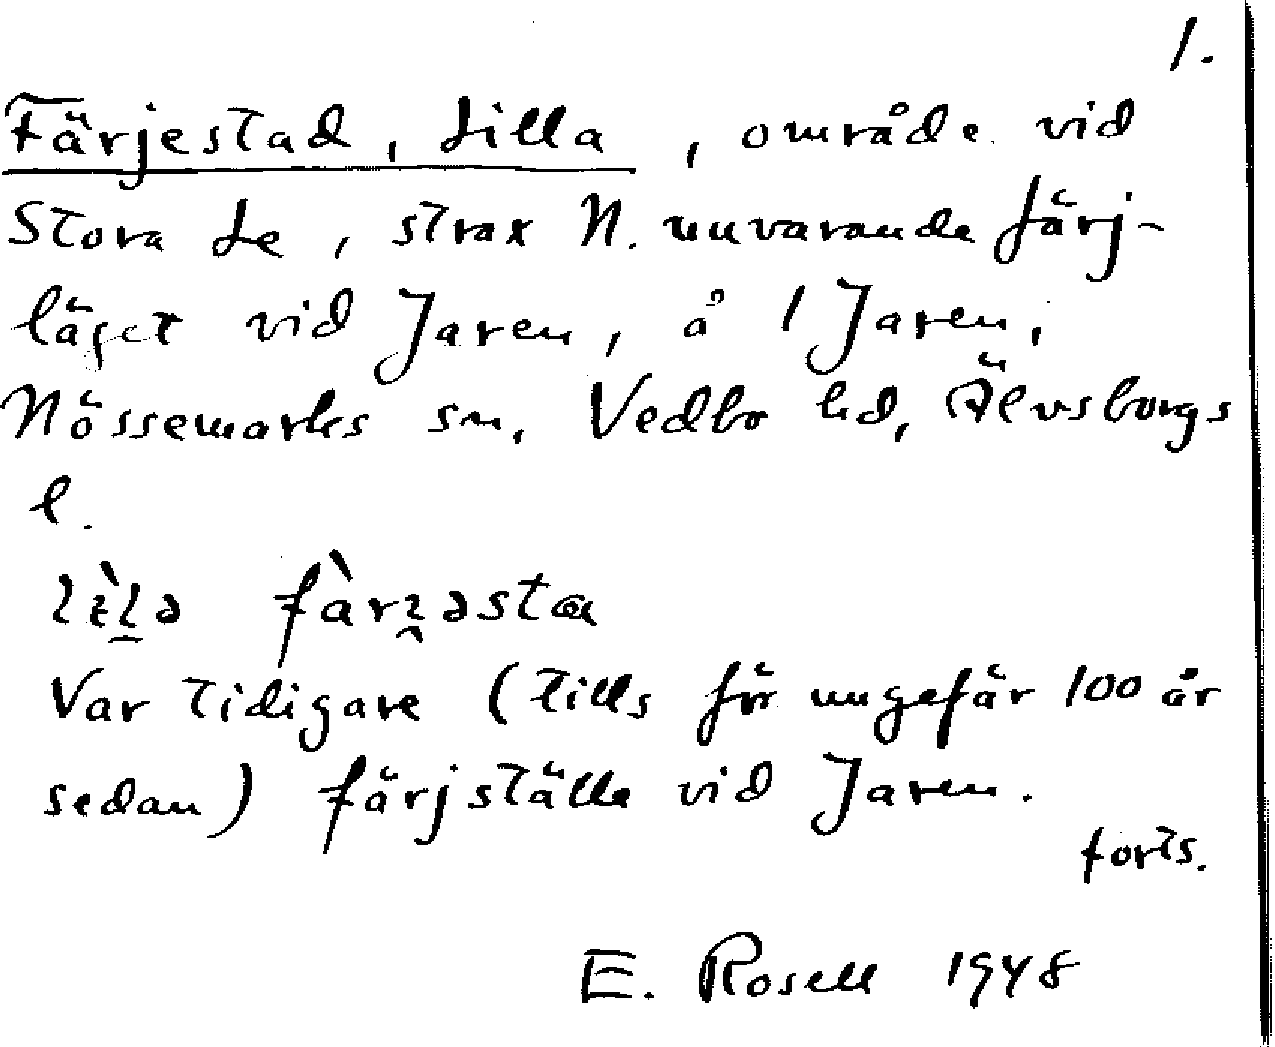 1.
Färjestad, Lilla, område vid
Stora Le, strax N. nuvarande färj-
läget vid Jaren, å 1 Jaren,
Nössemarks sn, Vedbo hd, Älvsborgs
l.
Var tidigare (tills för ungefär 100 år
sedan) färjställe vid Jaren.
forts.
E. Rosell 1948